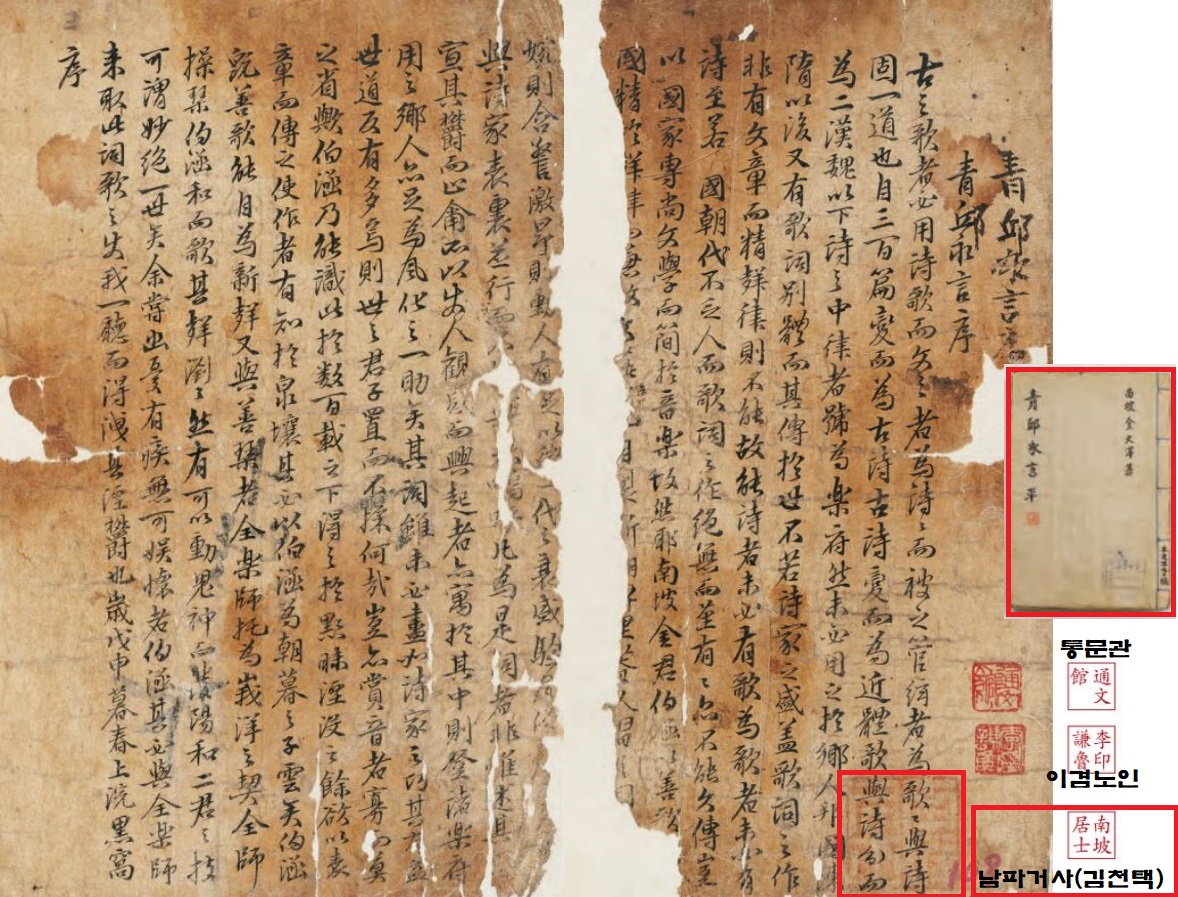 青邱永言序
古之歌者必用詩歌而文之者為詩詩而被之管絃者為歌歌與詩
固一道也自三百篇變而為古詩古詩變而為近體歌與詩分而
為二漢魏以下詩之中律者號為樂府然未必用之於鄉人邦國陳
隋以後又有歌詞別體而其傳於世不若詩家之盛盖歌詞之作
非有文章而精聲律則不能故能詩者未必有歌為歌者未必有
詩至若 國朝代不乏人而歌詞之作絕無而堇有有亦不能久傳豈
以國家專尚文學而簡於音樂故然耶南坡金君伯涵以善歌
國精於聲律
婉則含警激昂則動人有足以 一代之衰盛驗
與詩家表裏並行而 凡為是詞者非惟述其
宣其鬱而止爾所以使人觀感而興起者亦寓於其中則登諸樂府
用之鄉人亦足為風化之一助矣其詞雖未必盡如詩家之巧其有益
世道反有多焉則世之君子置而不採何哉豈亦賞音者寡而莫
之省歟伯涵乃能識此於數百載之下得之於黯昧湮沒之餘欲以表
章而傳之使作者有知於泉壤其必以伯涵為朝暮之子雲矣伯涵
既善歌能自為新聲又與善琴者全樂師托為峩洋之契全師
操琴伯涵和而歌其聲瀏瀏然有可以動鬼神而發陽和二君之技
可謂妙絕一世矣余嘗幽憂有疾無可娛懷者伯涵其必與全樂師
來取此詞歌之使我一聽而得洩其湮鬱也歲戊申暮春上浣黑窩
序
南坡金天澤著
青邱永言 單
통문관
通文
館
李印
謙魯
이겸노인
南坡
居士
남파거사(김천택)